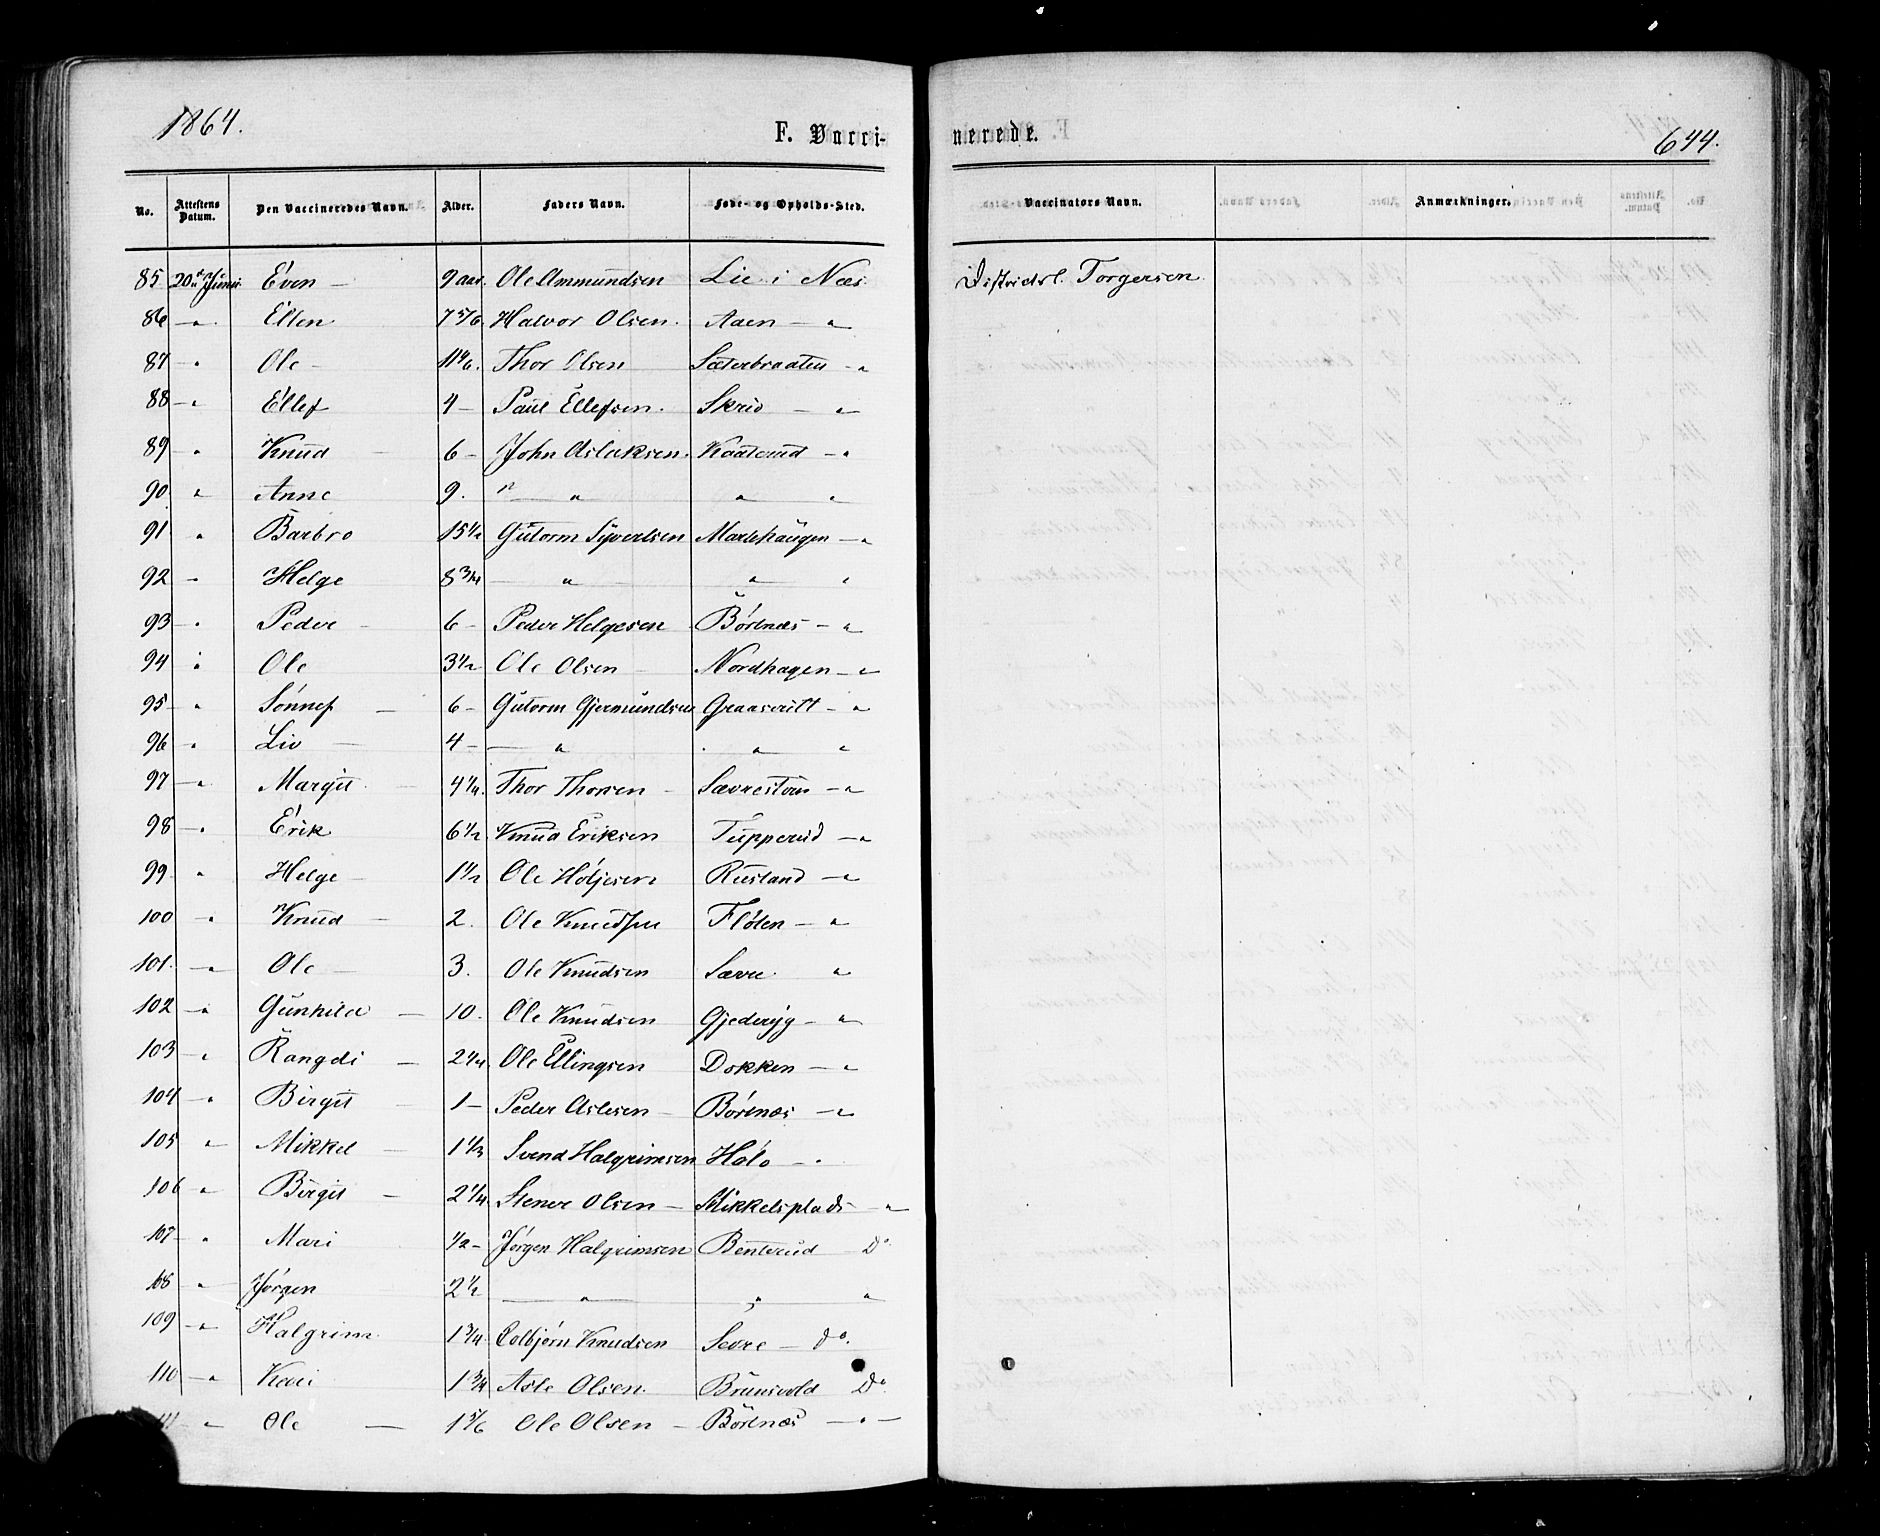 1864.
F. Vacci-
nerede.
644.
No. Attestens Datum. Den Vaccineredes Navn. Alder. Faders Navn. Føde- og Opholds-Sted. Vaccinators Navn. Anmærkninger.
85 20de Juni Even - 9 aar. Ole Ammundsen Lie i Næs. Districtsl. Torgersen
86 - " Ellen 7 5/6. Halvor Olsen. Aaen - "
87 - " Ole - 11 4/6. Thor Olsen Sæterbraaten - "
88 - " Ellef 4 - Paul Ellefsen. Skrið - "
89 " Knud - 6 - John Aslaksen. Kaaterud - "
90 " Anne 9. " " " "
91 " Barbro 15 1/2 Gutorm Syvertsen Marlehaugen - "
92 - Helge 8 3/4 - " " "
93 - " Peder - 6 - Peder Helgesen Børtnæs - "
94 " Ole 3 1/2 Ole Olsen - Nordhagen - "
95 - " Sønnef - 6 - Gutorm Gjermundsen - "
96 " Liv - 4 - - " " "
97 - " Margit - 4 1/4. Thor Thorsen - - "
98 - " Erik 6 1/2 Knud Eriksen Tupperud - "
99 " Helge - 1 1/2 Ole Høljesen Rusland - "
100 " Knud - 2. Ole Knudsen Fløten - "
101. - " Ole - 3. Ole Knudsen Sævre "
102 - " Gunhild - 10. Ole Knudsen Gjederyg - "
103 " Rangdi - 2 1/4. Ole Ellingsen Dokken - "
104 - " Birgit - 1 - Peder Aslesen - Børtnæs - "
105 " Mikkel - 1 1/3 Svend Halgrimsen Holo - "
106 " Birgit - 2 1/4. Stener Olsen - Mikkelsplads - "
107 - " Mari 1/2 - Jørgen Halgrimsen Benterud - Do
108 " Jørgen 2 1/2 - " " "
109 - " Halgrim 1 3/4. Colbjørn Knudsen Sevre - do.
110 - " Kari 1 3/4 Asle Olsen. Brunsvold Do
" Ole - 1 5/6 Ole Olsen - Børtnæs - " -